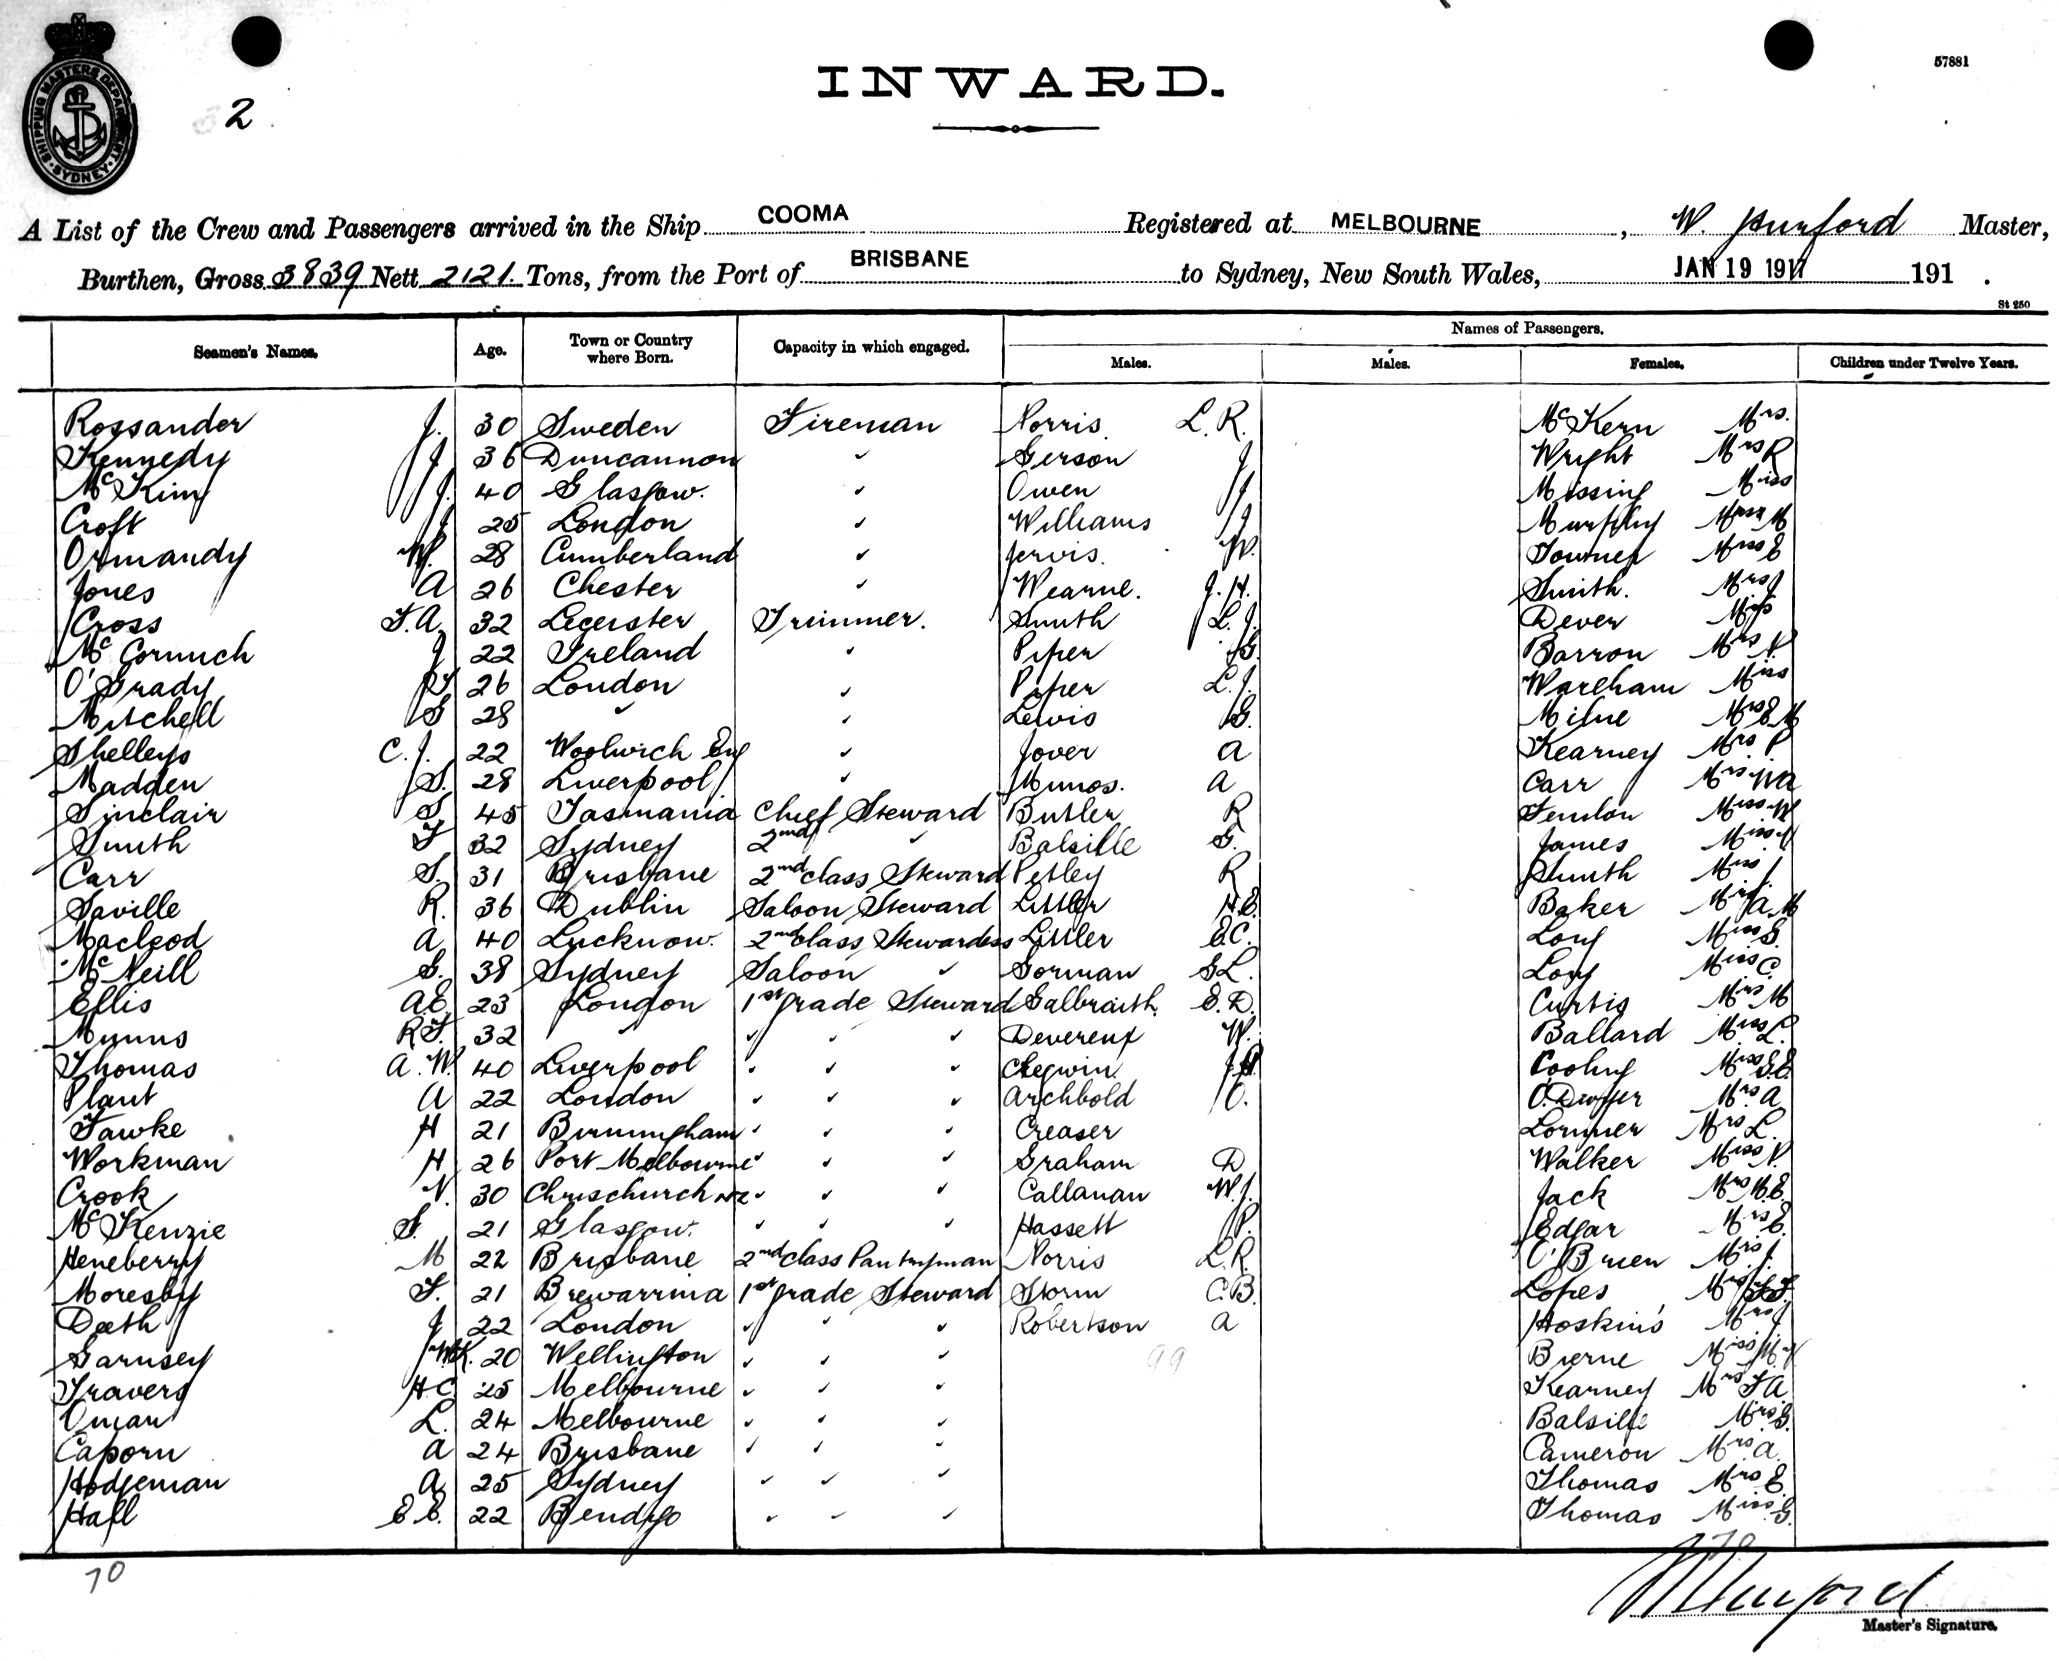 SHIPPING MASTERS DEPARTMENT SYDNEY
2
57881
INWARD.
A List of the Crew and Passengers arrived in the Ship COOMA Registered at MELBOURNE, W. Hurford Master,
Burthen, Gross 3839 Nett 2121. Tons, from the Port of BRISBANE to Sydney, New South Wales, JAN 19 1917 191 .
St 250
Names of Passengers.
Seamen's Names. Age. Town or Country where Born. Capacity in which engaged. Males. Males. Females. Children under Twelve Years.
Rossander J. 30 Sweden Fireman Norris L. R. McKern Mrs.
Kennedy J 36 Duncannon " Gerson J Wright Mrs R
McKim J. 40 Glasgow. " Owen J Missing Miss
Croft J 25 London " Williams J Murphy M
Ormandy W. 28 Cumberland " Jervis. W. Towner Mrs E
Jones A 26 Chester " Wearne. J. H. Smith. Mrs J
Cross F. A. 32 Leicester Trimmer. Smith L. J. Dever Miss
McCormich J 22 Ireland " Piper G. Barron Mrs N.
O'Grady 26 London " Piper L. J. Wareham Miss
Mitchell G 28 " " Lewis G. Milne Mrs E M
Shelleys C. J. 22 Woolwich Eng " Jover A Kearney Mrs P
Madden S. 28 Liverpool " Munos. A Carr Mrs WA
Sinclair S. 45 Tasmania Chief Steward Butler R Fenlon Miss M
Smith F 32 Sydney 2nd " Balsille G. James Miss
Carr S. 31 Brisbane 2nd class Steward Petley R Smith Miss J
Saville R. 36 Dublin Saloon Steward Littler H. E. Baker A. M
Macleod A 40 Lucknow. 2nd class Stewardess Littler E C. Long Miss G.
McNeill G. 38 Sydney Saloon " Gorman G L. Long Miss C.
Ellis A E. 23 London 1st grade Steward Galbraith. E. D. Curtis Mrs M
Munns R F. 32 " " " " Devereux W. Ballard Miss L.
Thomas A. W. 40 Liverpool " " " Chegwin J H Cooling Miss G. E.
Plant A 22 London " " " Archbold O. O'Dwyer Mrs. A
Fawke H 21 Birmingham " " " Creaser Lorimer Mrs L.
Workman H 26 Port Melbourne " " " Graham D Walker Miss N.
Crook N. 30 Chrischurch NZ " " " Callanan W. J. Jack Mrs M. E.
McKenzie S. 21 Glasgow. " " " Hassett P. Edgar Mrs E.
Heneberry M 22 Brisbane 2nd class Pantryman Norris L. R. O'Brien Mrs J.
Moresby F. 21 Brewarrina 1st grade Steward Storm C. B. Lopes Mrs
Deeth J 22 London " " " Robertson A Hoskins Mrs J
Garnsey W. K. 20 Wellington " " " 99 Bierne Miss M.
Travers H C 25 Melbourne " " " Kearney Mrs F A
Oman L. 24 Melbourne " " " Balsille Mrs G.
Caporn A 24 Brisbane " " " Cameron Mrs A.
Hodgeman A. 25 Sydney " " " Thomas Mrs E.
Hall E E. 22 Bendigo " " " Thomas Miss G.
70
W Hurford
Master's Signature.